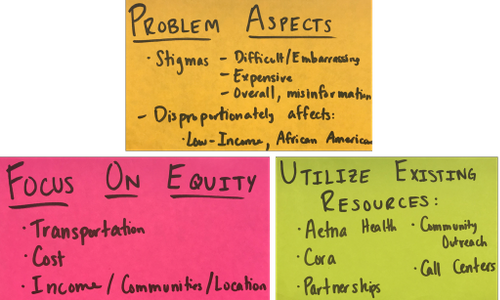 PROBLEM ASPECTS
· Stigmas - Difficult/Embarrassing
- Expensive
- Overall, misinformation
- Disproportionately affects:
· Low-Income, African American
FOCUS ON EQUITY
· Transportation
· Cost
· Income / Communities/Location
UTILIZE EXISTING
RESOURCES:
· Aetna Health
· Cora
· Partnerships
· Community
Outreach
· Call Centers